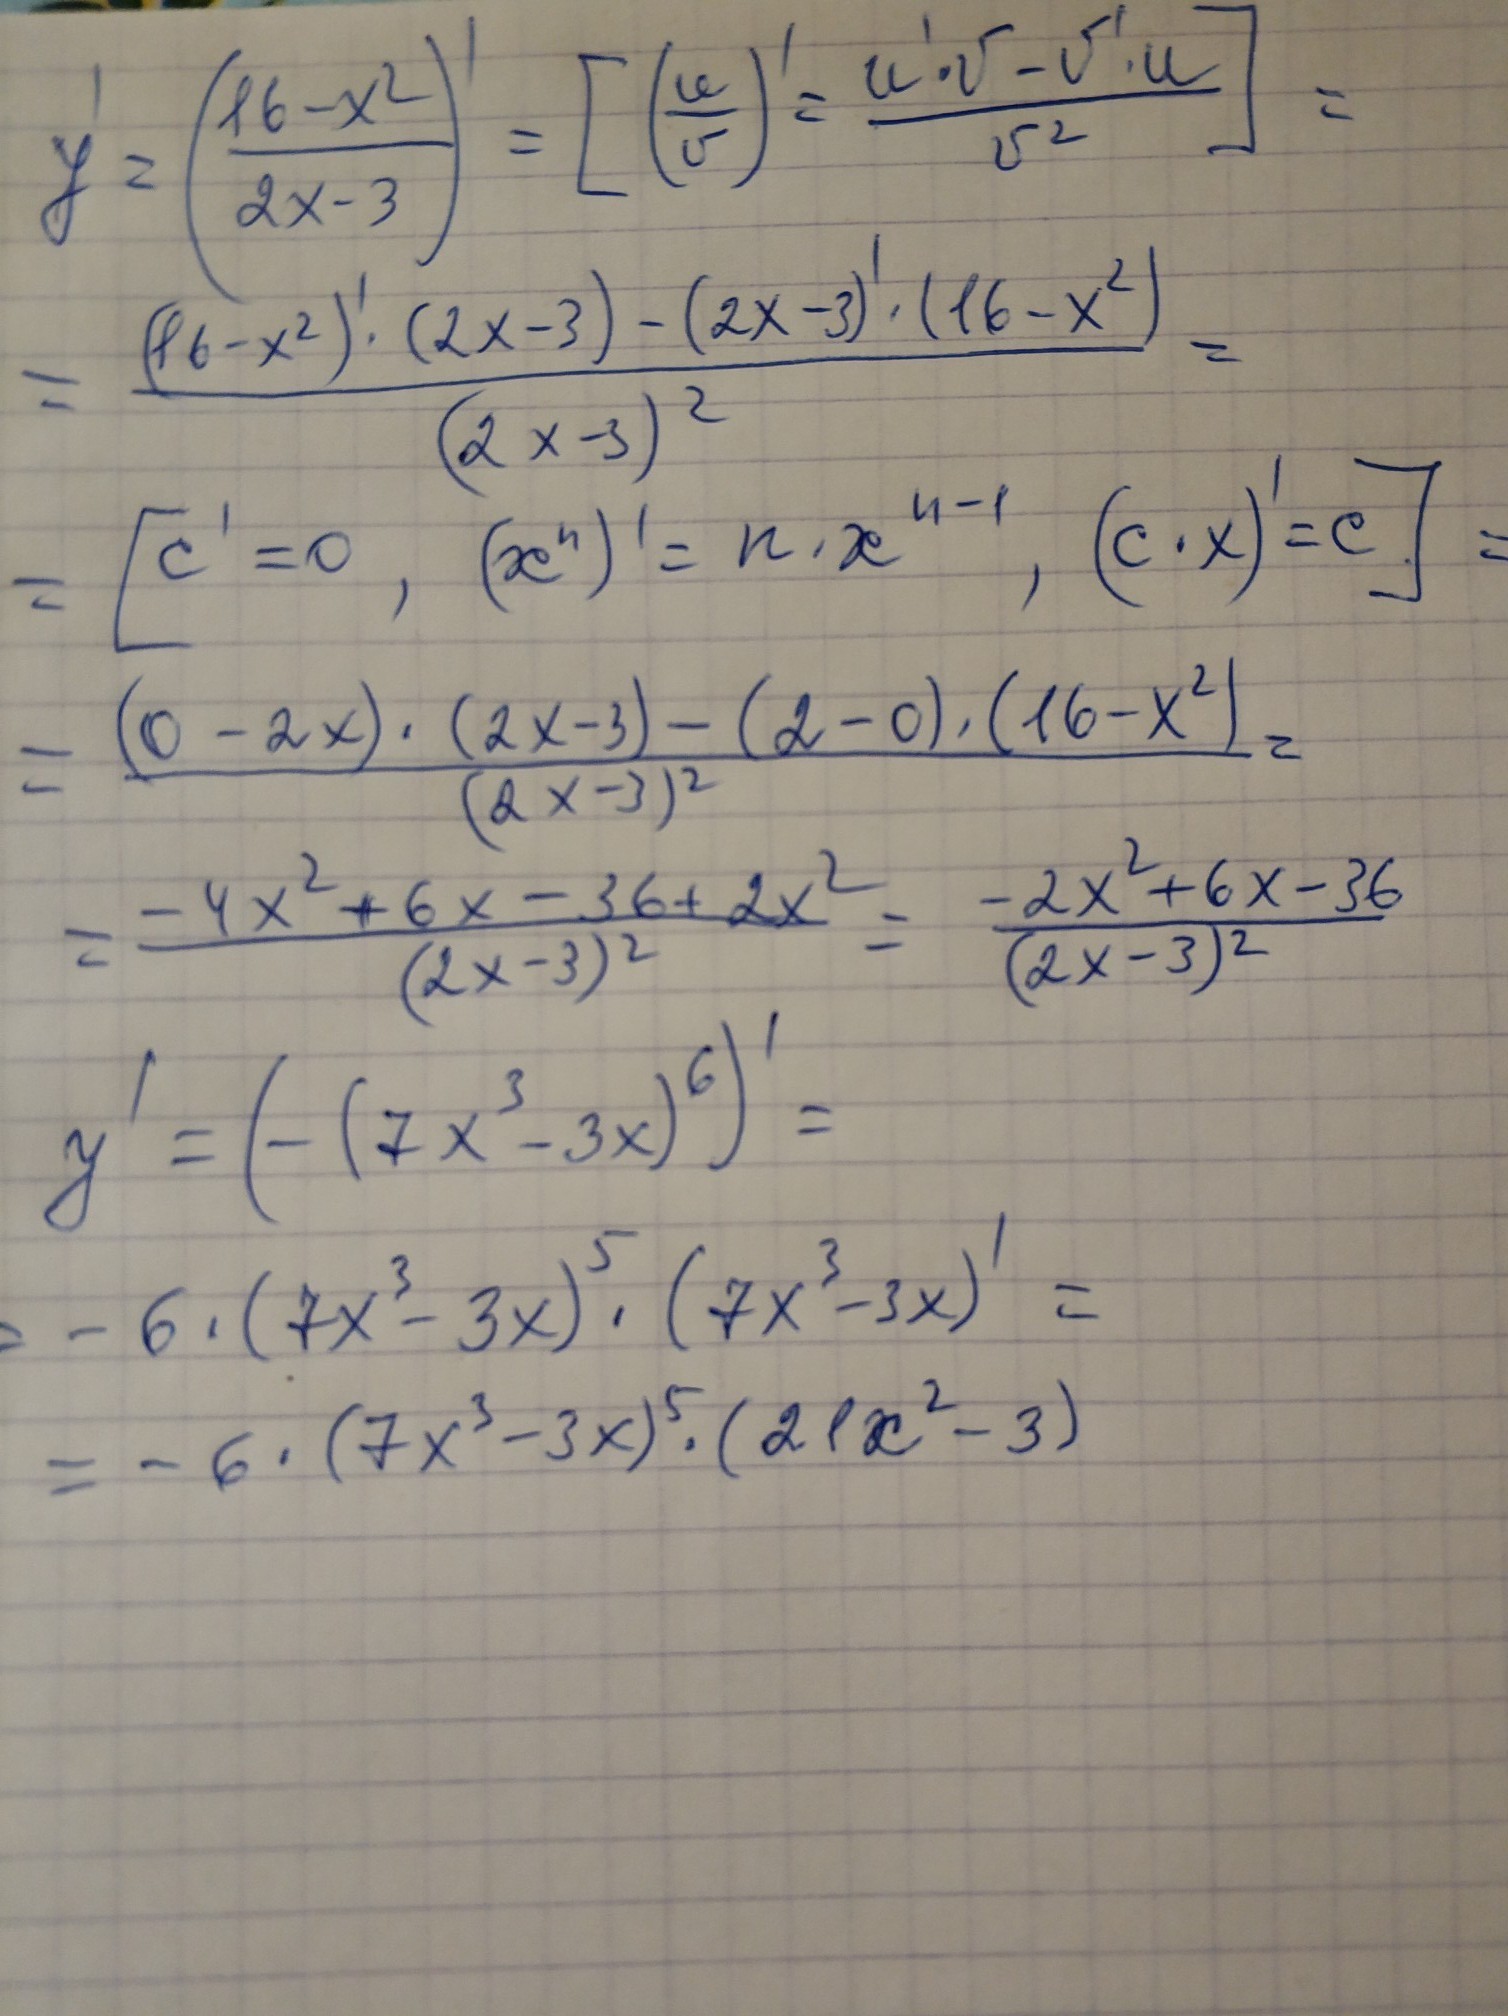 y' = ((16-x²)/(2x-3))' = [(u/v)' = (u'·v - v'·u)/v²] =
= ((16-x²)'·(2x-3) - (2x-3)'·(16-x²))/(2x-3)² =
= [c' = 0, (xⁿ)' = n·xⁿ⁻¹, (c·x)' = c] =
= ((0-2x)·(2x-3) - (2-0)·(16-x²))/(2x-3)² =
= (-4x²+6x-36+2x²)/(2x-3)² = (-2x²+6x-36)/(2x-3)²
y' = (-(7x³-3x)⁶)' =
= -6·(7x³-3x)⁵·(7x³-3x)' =
= -6·(7x³-3x)⁵·(21x²-3)